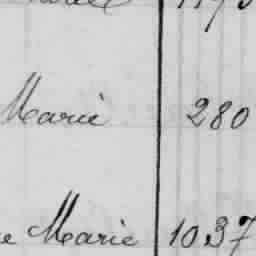 Marie 280
Marie 1037